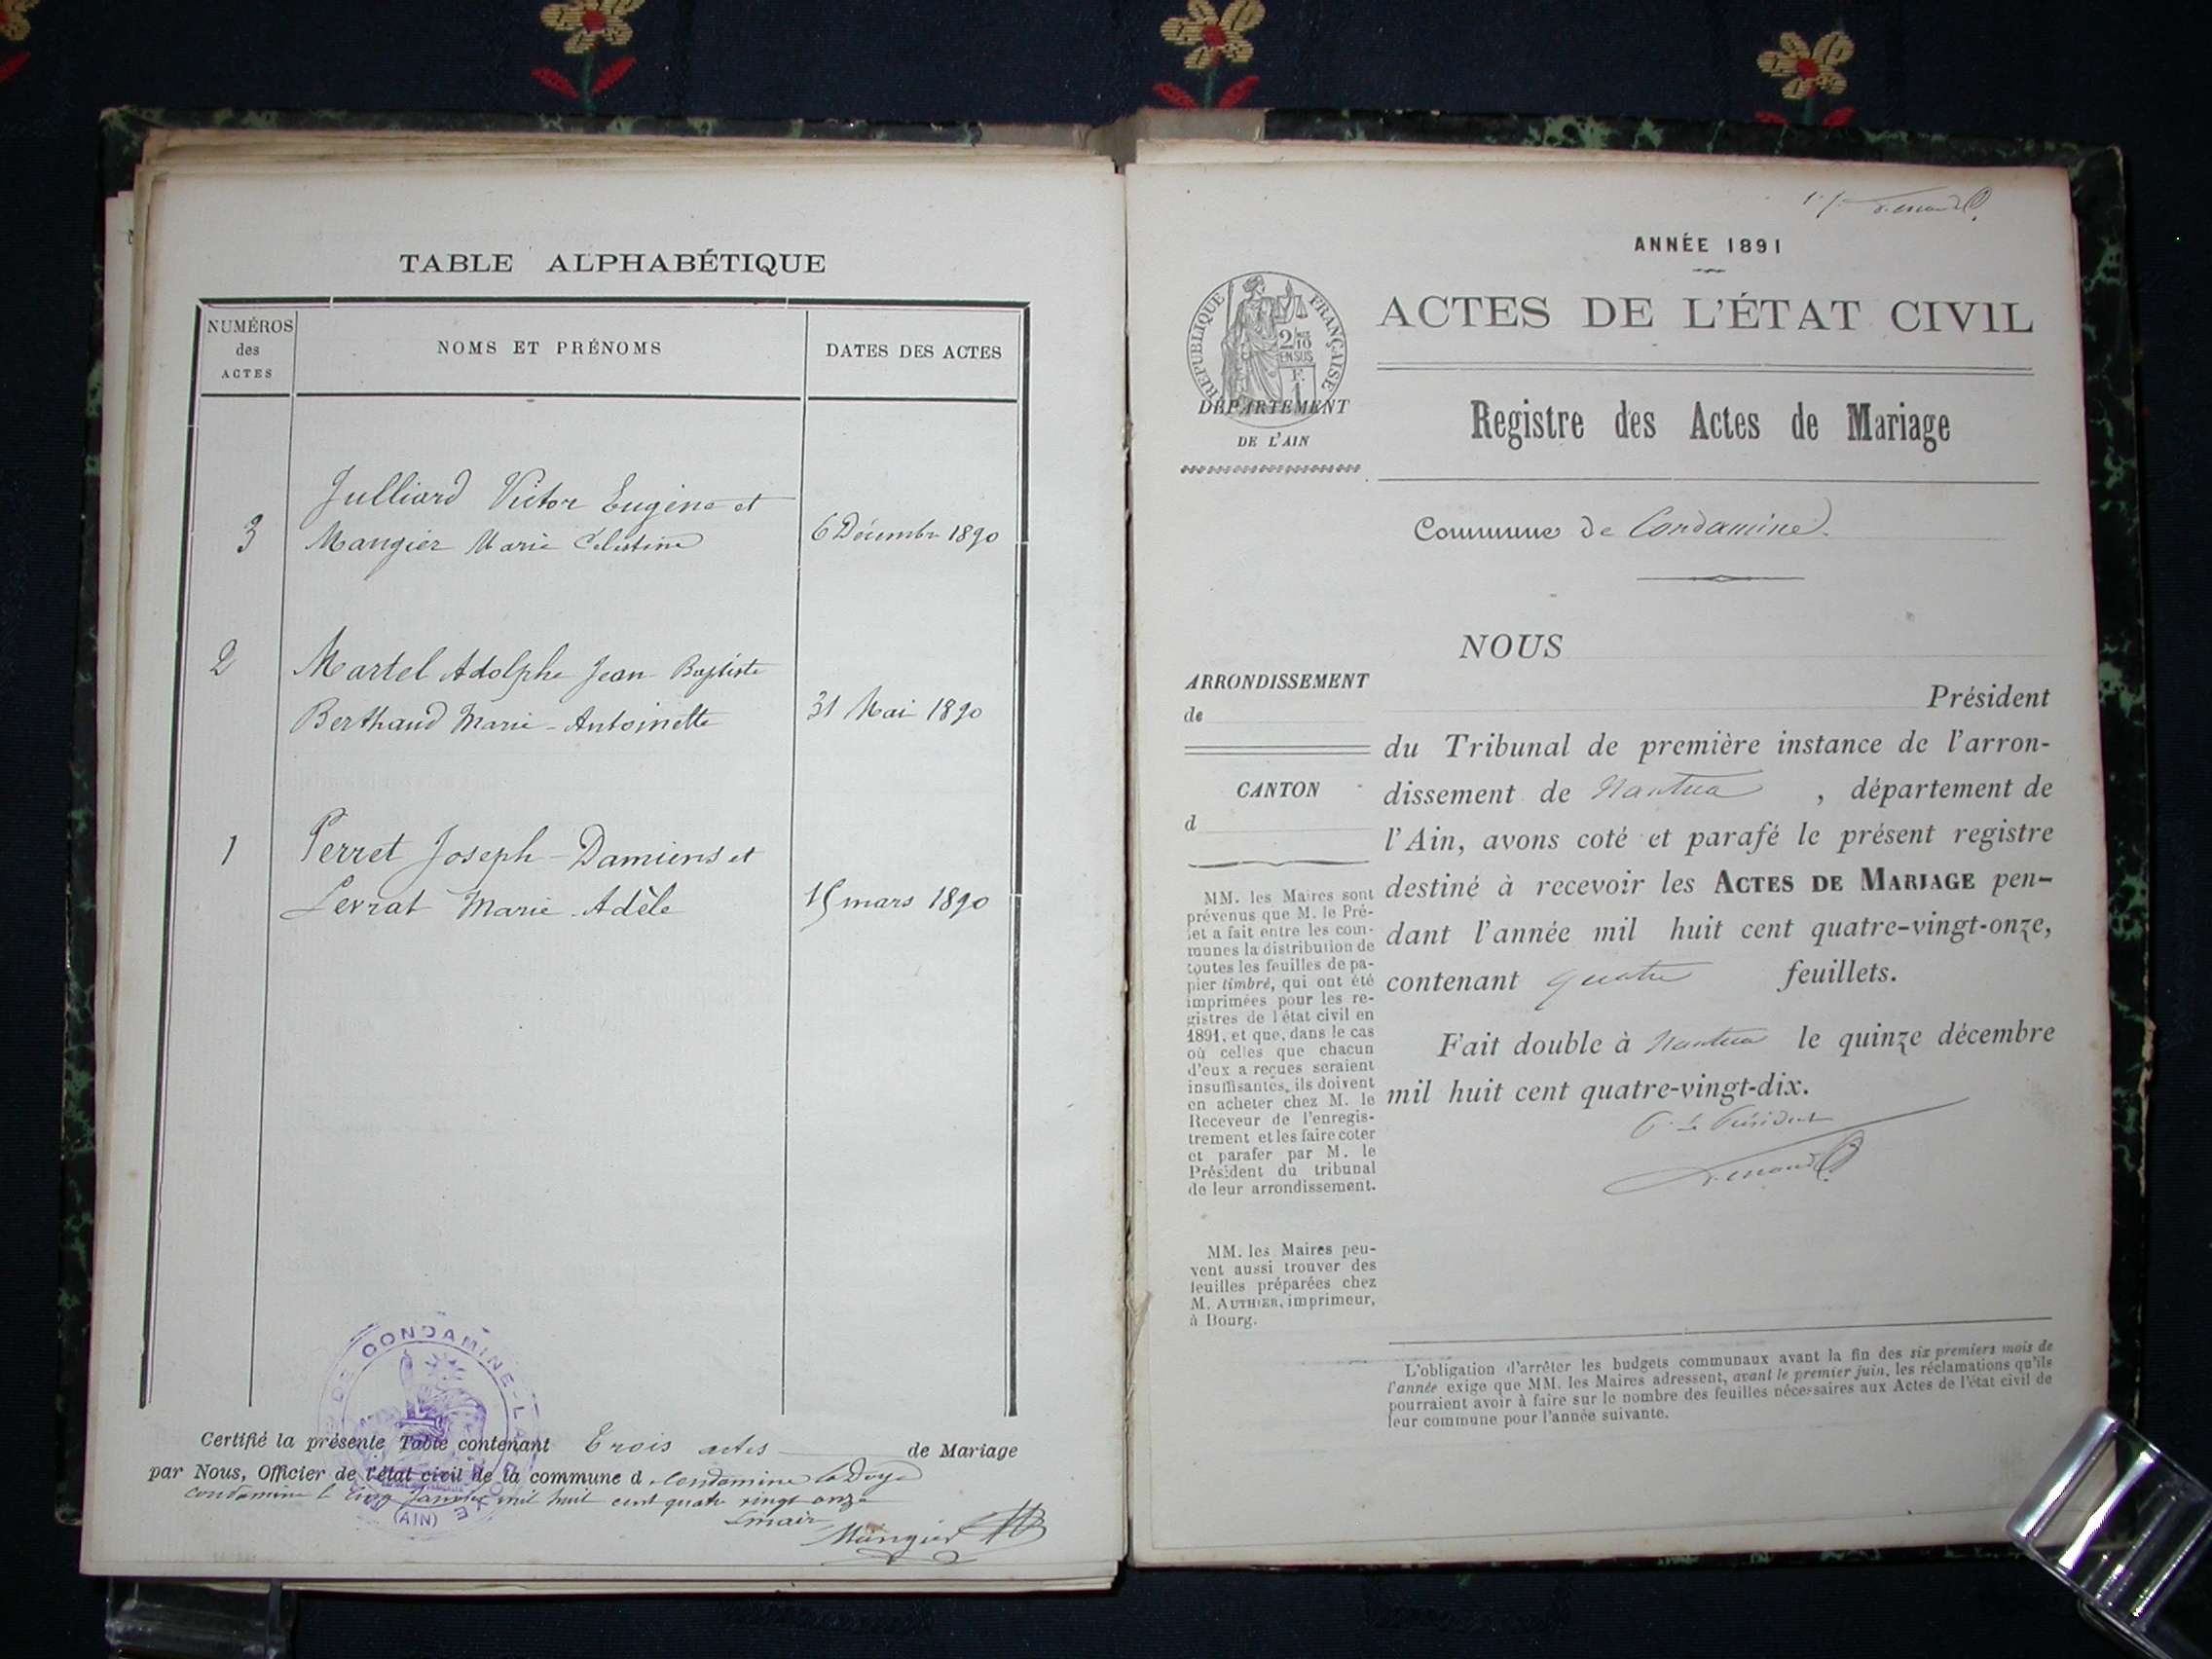 TABLE ALPHABÉTIQUE
NUMÉROS
des
ACTES
NOMS ET PRÉNOMS
DATES DES ACTES
Julliard Victor Eugène et
3 Mangier Marie Célestine 6 Décembre 1890
2 Martel Adolphe Jean-Baptiste
Berthaud Marie-Antoinette 31 Mai 1890
1 Perret Joseph-Damiens et
Levrat Marie-Adèle 15 mars 1890
DE CONDAMINE-LA DOYE
(AIN)
Certifié la présente Table contenant Trois actes de Mariage
par Nous, Officier de l'état civil de la commune d Condamine la Doye
Condamine le cinq Janvier mil huit cent quatre vingt onze
Le maire
Mangier
ANNÉE 1891
RÉPUBLIQUE FRANÇAISE
2/10
EN SUS
F.
1
ACTES DE L'ÉTAT CIVIL
DÉPARTEMENT
DE L'AIN
Registre des Actes de Mariage
Commune de Condamine
NOUS
ARRONDISSEMENT
de
Président
du Tribunal de première instance de l'arron-
CANTON
d
dissement de Nantua , département de
l'Ain, avons coté et parafé le présent registre
destiné à recevoir les ACTES DE MARIAGE pen-
dant l'année mil huit cent quatre-vingt-onze,
contenant quatre feuillets.
Fait double à Nantua le quinze décembre
mil huit cent quatre-vingt-dix.
P. le Président
MM. les Maires sont
prévenus que M. le Pré-
fet a fait entre les com-
munes la distribution de
toutes les feuilles de pa-
pier timbré, qui ont été
imprimées pour les re-
gistres de l'état civil en
1891, et que, dans le cas
où celles que chacun
d'eux a reçues seraient
insuffisantes, ils doivent
en acheter chez M. le
Receveur de l'enregis-
trement et les faire coter
et parafer par M. le
Président du tribunal
de leur arrondissement.
MM. les Maires peu-
vent aussi trouver des
feuilles préparées chez
M. AUTHIER, imprimeur,
à Bourg.
L'obligation d'arrêter les budgets communaux avant la fin des six premiers mois de
l'année exige que MM. les Maires adressent, avant le premier juin, les réclamations qu'ils
pourraient avoir à faire sur le nombre des feuilles nécessaires aux Actes de l'état civil de
leur commune pour l'année suivante.